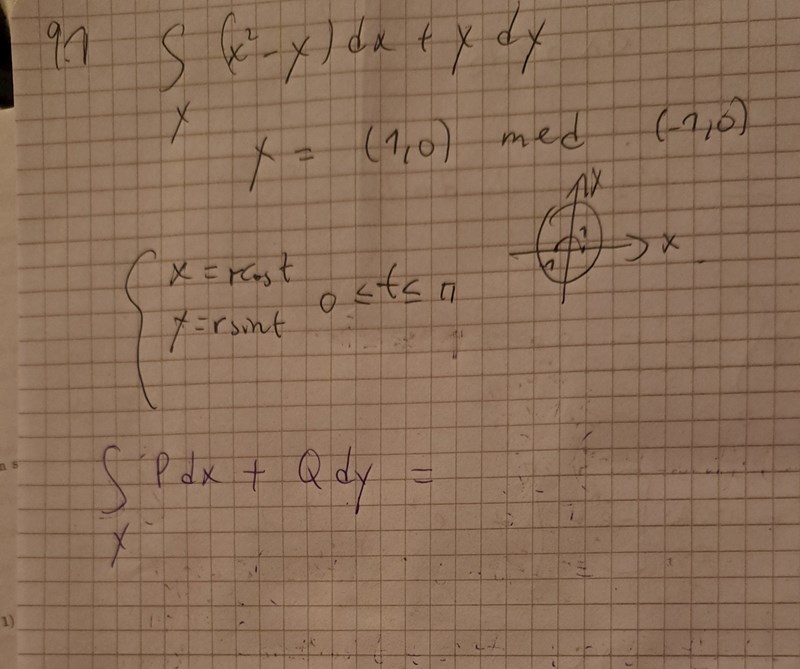 9.1 ∫ (x² - y) dx + y dy
γ
γ = (1,0) med (-1,0)
y
x
{ x = r cos t
y = r sin t 0 ≤ t ≤ π
∫ P dx + Q dy =
γ